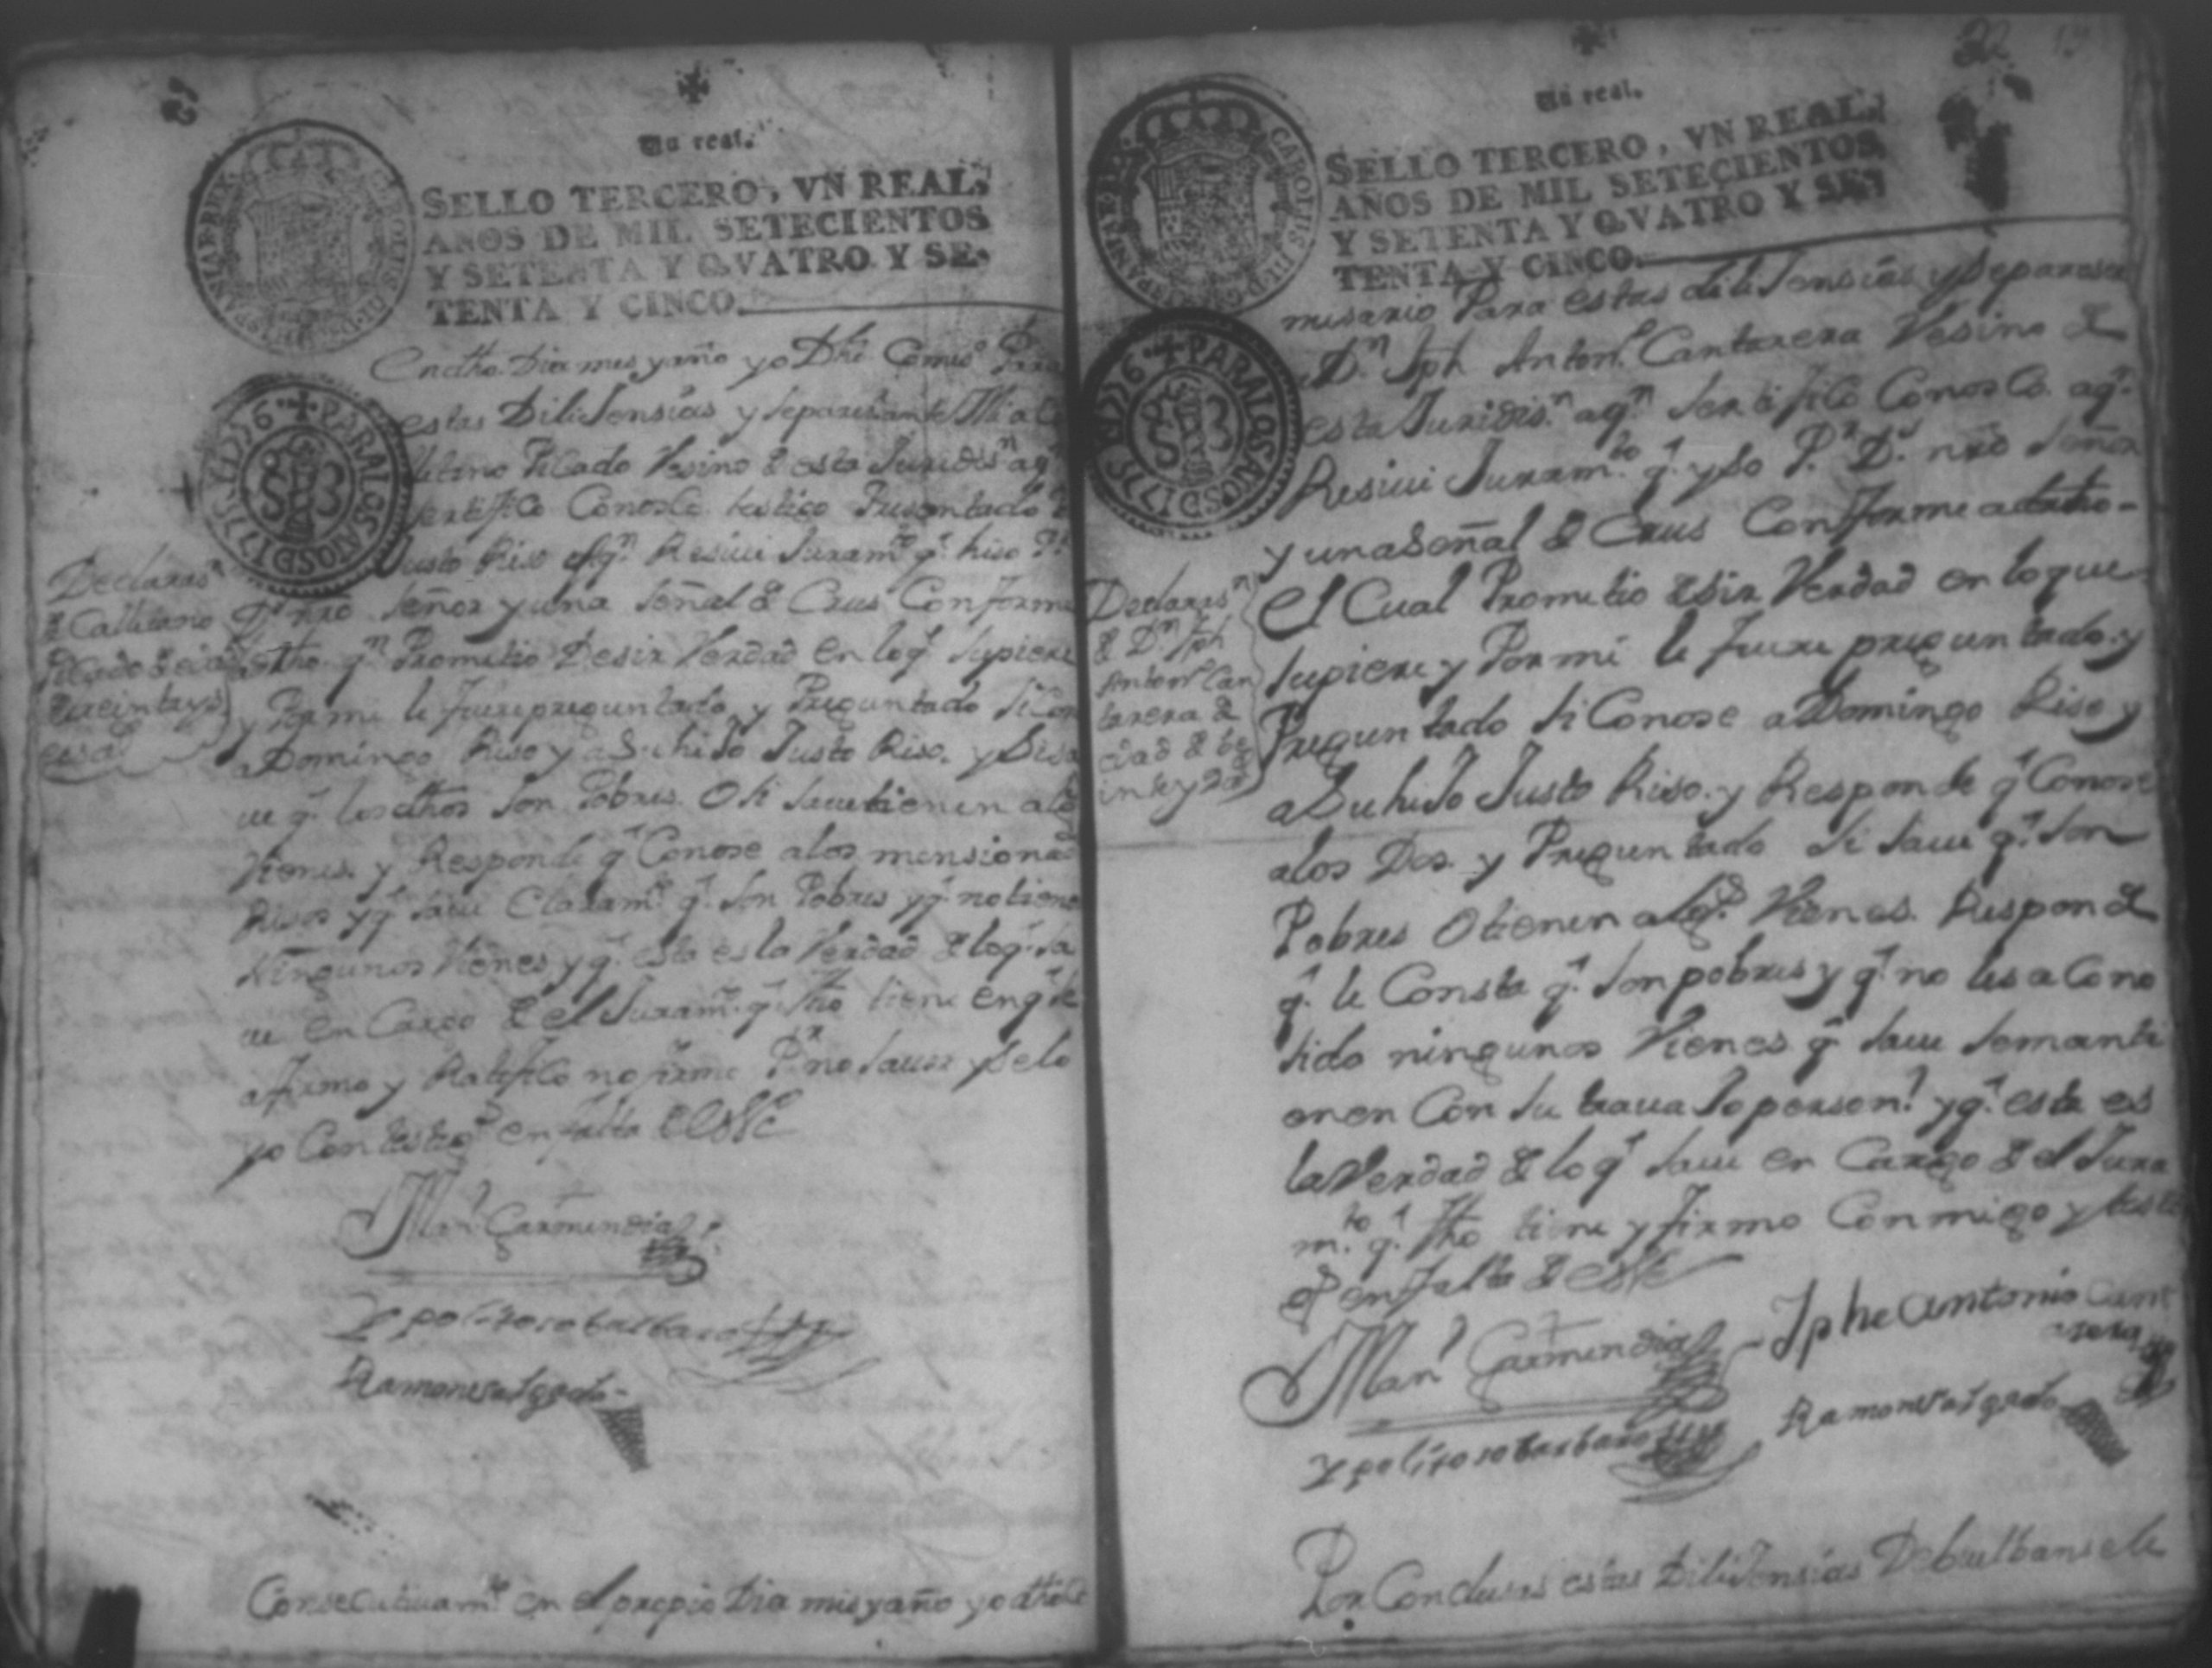 Un real.
SELLO TERCERO, VN REAL,
AÑOS DE MIL SETECIENTOS
Y SETENTA Y QVATRO Y SE-
TENTA Y CINCO.
CAROLUS III D. G. HISPANIAR. REX
PARA LOS AÑOS D 1775 Y 1776
En dho. Dia mes y año yo Dho Comiso. Para
estas DiliJensias y separesi ante Mi a Ca
lletano Picado Vesino de esta Juridisn aqn
sertifico Conosco testigo Presentado
Justo Riso Aqn Resiui Juramto q. hiso Pr
Declarasn
de Calletano
Picado de eda
treinta y s
Dr. nro señor y una señal de Crus Conforme
dtho. qn Promitio Desir Verdad en loq. supiere
y Por mi le fuere preguntado, y Preguntado si Con
a Domingo Riso y a Su hiJo Justo Riso, y Si sa
ue q. los dhos son Pobres. O si saue tienen alg
Vienes. y Responde q. Conose alos mensionad
Risos y q. saue Claramte q. son Pobres y q. no tiene
Ningunos Vienes y q. esta es la Verdad de loq. sa
ue en Cargo de el Juramto q. fho tiene en q. se
afirmo y Ratifico no firmo Pr. no sauer y Selo
yo Con testigs en falta de Esse
Manl Garmendia
Ypolito so barbaro
Ramon salgado
Consecutiuamte en el propio Dia mes y año yo dho Co
22 19
Un real.
SELLO TERCERO, VN REAL,
AÑOS DE MIL SETECIENTOS
Y SETENTA Y QVATRO Y SE-
TENTA Y CINCO.
CAROLUS III D. G. HISPANIAR. REX
PARA LOS AÑOS D 1775 Y 1776
misario Para estas diliJensias y Separesi
a Dn. Jph Anton. Cantarera Vesino de
esta Juridisn. aqn sertifico Conosco. aq.
Resiui Juramto. q. yso Pr. Dr. nro señor
y una señal de Crus Conforme a dtro-
Declarasn
de Dn Jph
Anton Can
tarera de
edad de be
inte y dos
el Cual Promitio desir Verdad en lo que
supiere y Por mi le fuere preguntado. y
Preguntado si Conose a Domingo Riso y
a Su hiJo Justo Riso. y Responde q. Conose
alos Dos. y Preguntado si saue q. son
Pobres O tienen algs. Vienes. Responde
q. le Consta q. son pobres y q. no les a Cono
sido ningunos Vienes q. saue se manti
enen Con su trauaJo person.l y q. esta es
la Verdad de lo q. saue en Cargo de el Jura
mto. q. fho tiene y firmo Conmigo y test
en falta de esse
Manl Garmendia Jphe antonio cant
arera
Ypolito so barbaro Ramon salgado
Por Conclusas estas DiliJensias Debuelbansele